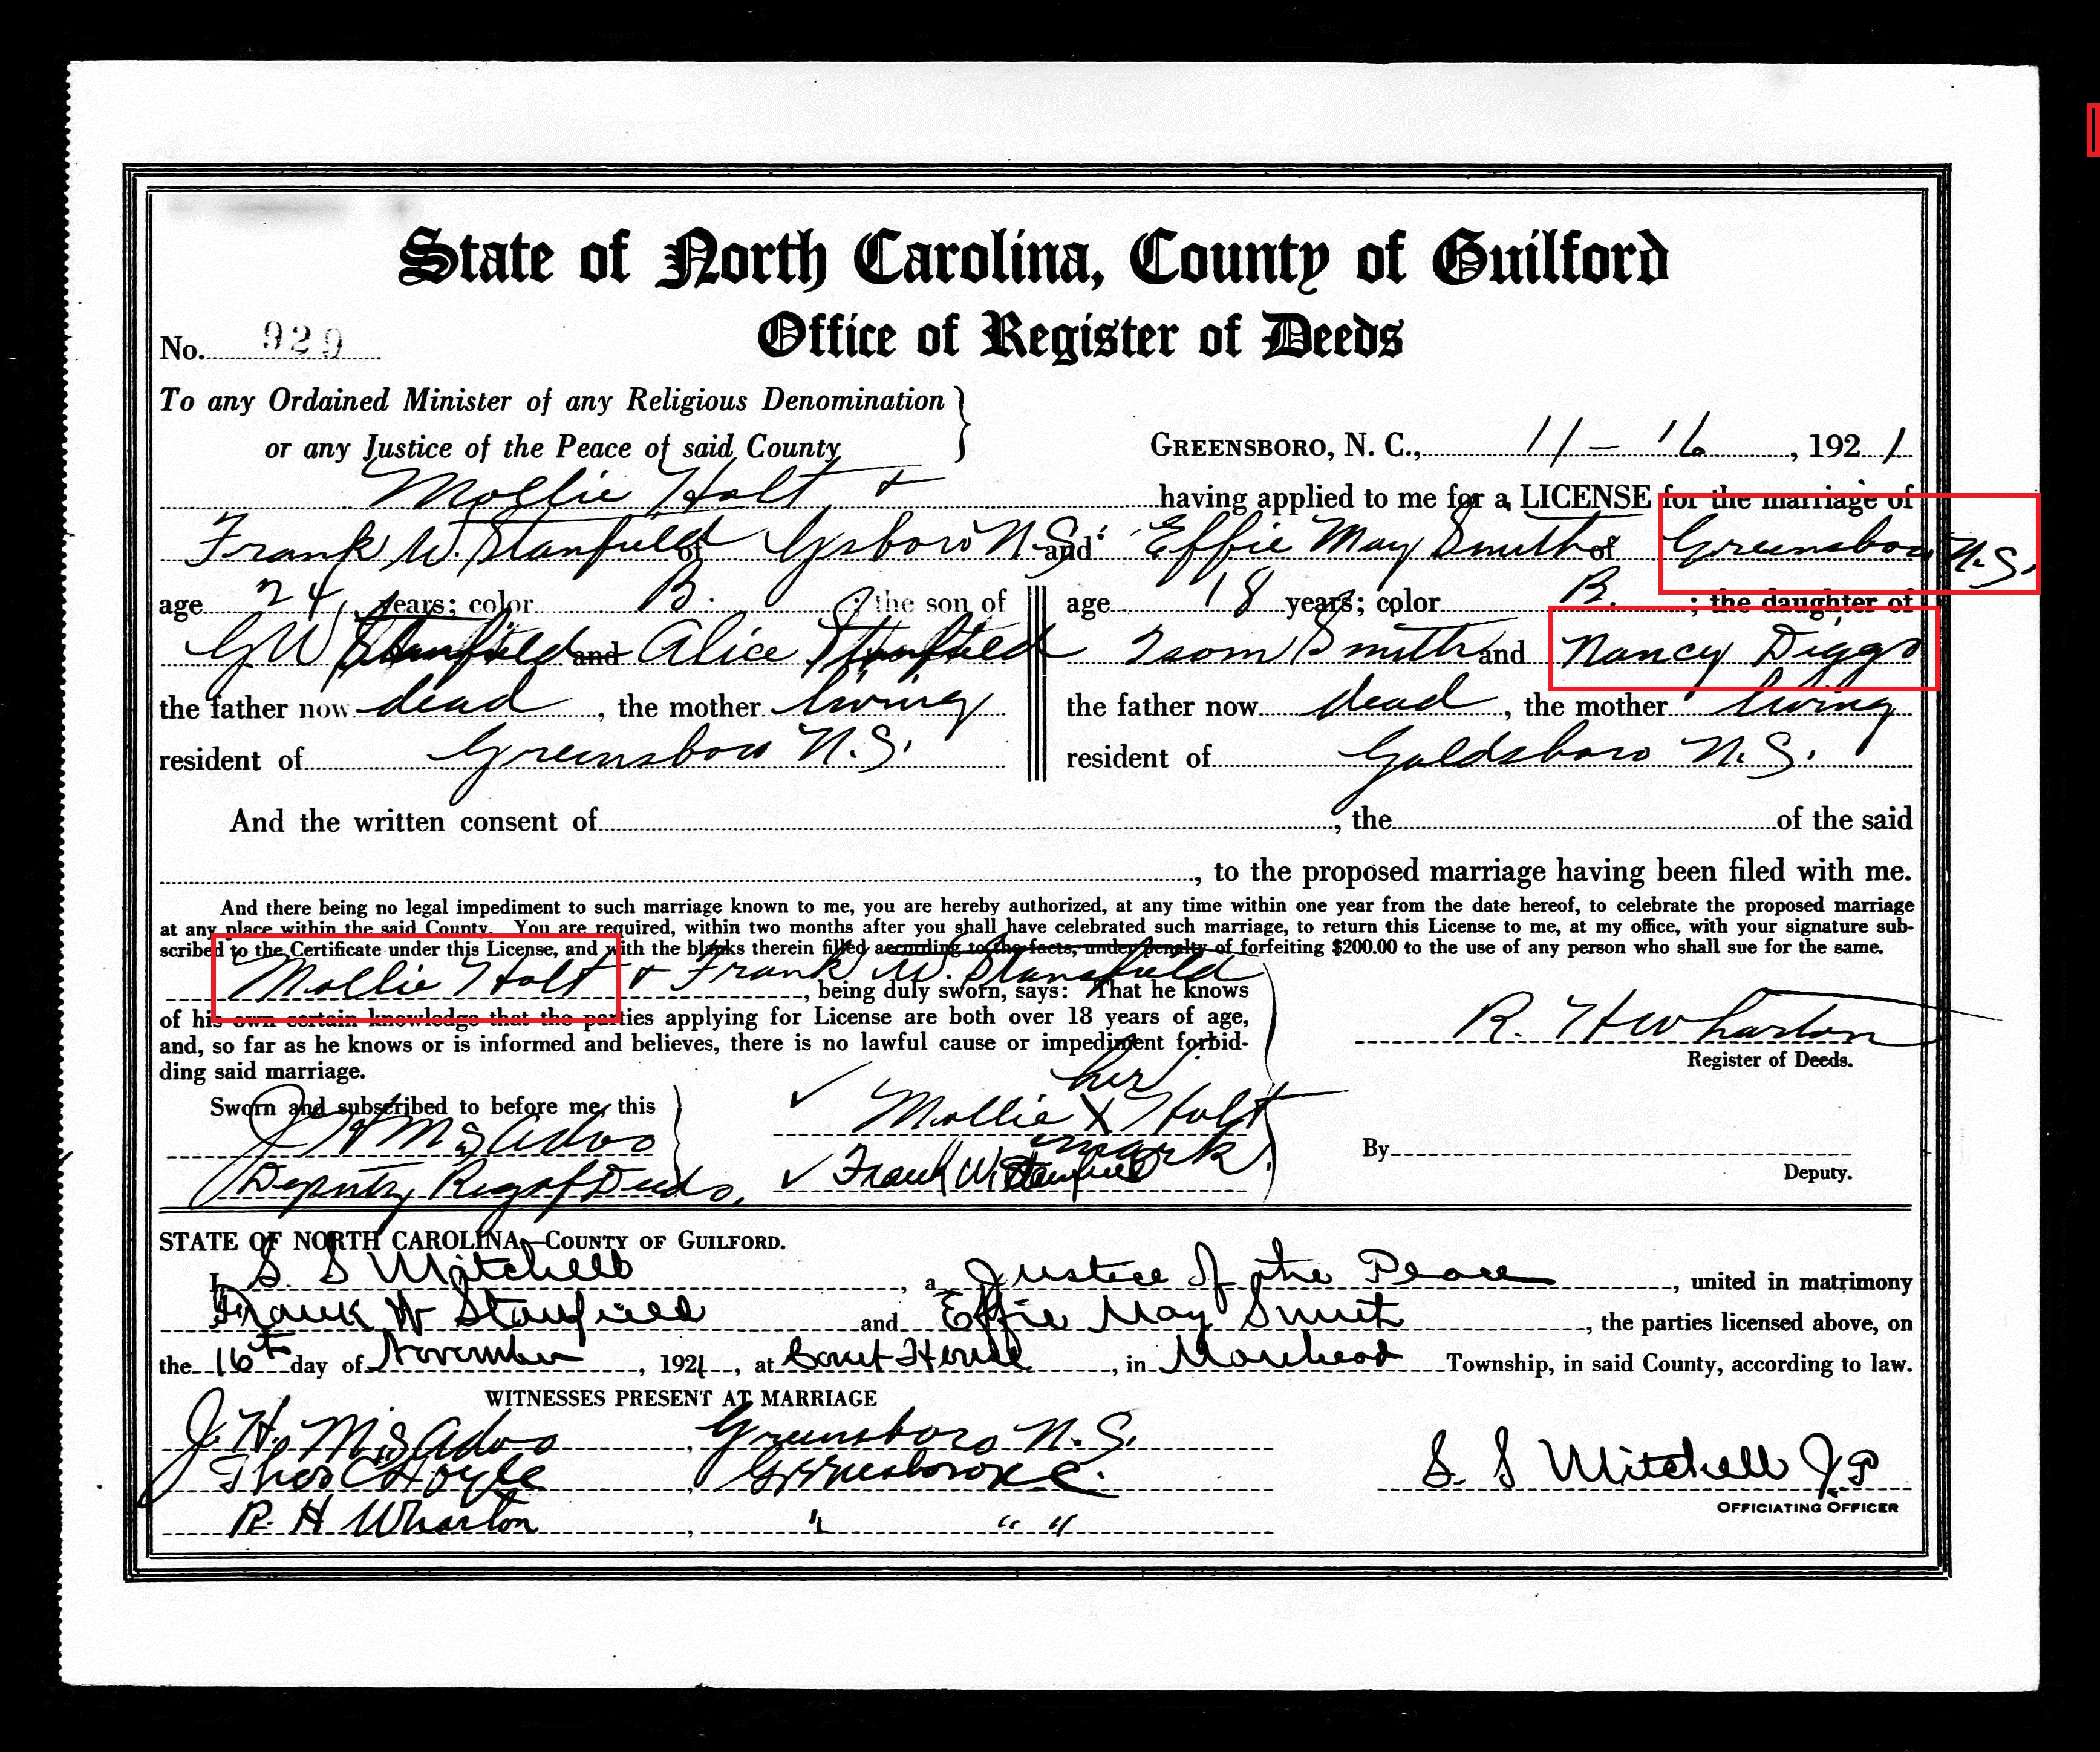 State of North Carolina, County of Guilford
Office of Register of Deeds
No. 929
To any Ordained Minister of any Religious Denomination
or any Justice of the Peace of said County
GREENSBORO, N. C., 11 - 16, 1921
Mollie Holt + having applied to me for a LICENSE for the marriage of
Frank W. Stanfield of Gsboro N.C. and Effie May Smith of Greensboro N.C.
age 24 years; color B. ; the son of
G W Stanfield and Alice Stanfield
the father now dead, the mother living
resident of Greensboro N.C.
age 18 years; color B. ; the daughter of
Isom Smith and Nancy Diggs
the father now dead, the mother living
resident of Goldsboro N.C.
And the written consent of, the of the said
, to the proposed marriage having been filed with me.
And there being no legal impediment to such marriage known to me, you are hereby authorized, at any time within one year from the date hereof, to celebrate the proposed marriage
at any place within the said County. You are required, within two months after you shall have celebrated such marriage, to return this License to me, at my office, with your signature sub-
scribed to the Certificate under this License, and with the blanks therein filled according to the facts, under penalty of forfeiting $200.00 to the use of any person who shall sue for the same.
Mollie Holt + Frank W. Stansfield, being duly sworn, says: That he knows
of his own certain knowledge that the parties applying for License are both over 18 years of age,
and, so far as he knows or is informed and believes, there is no lawful cause or impediment forbid-
ding said marriage.
R. H Wharton
Register of Deeds.
Sworn and subscribed to before me, this
J H
Deputy Reg of Deeds.
her
Mollie X Holt
mark
Frank W. Stanfield
By
Deputy.
STATE OF NORTH CAROLINA—COUNTY OF GUILFORD.
I, S. S Mitchell, a Justice of the Peace, united in matrimony
Frank W Stanfield and Effie May Smith, the parties licensed above, on
the 16th day of November, 1921, at Court House, in Morehead Township, in said County, according to law.
WITNESSES PRESENT AT MARRIAGE
J. H., Greensboro N.C.
Theo C Hoyle, Greensboro N.C.
R. H Wharton, " " "
S. S Mitchell J.P
OFFICIATING OFFICER